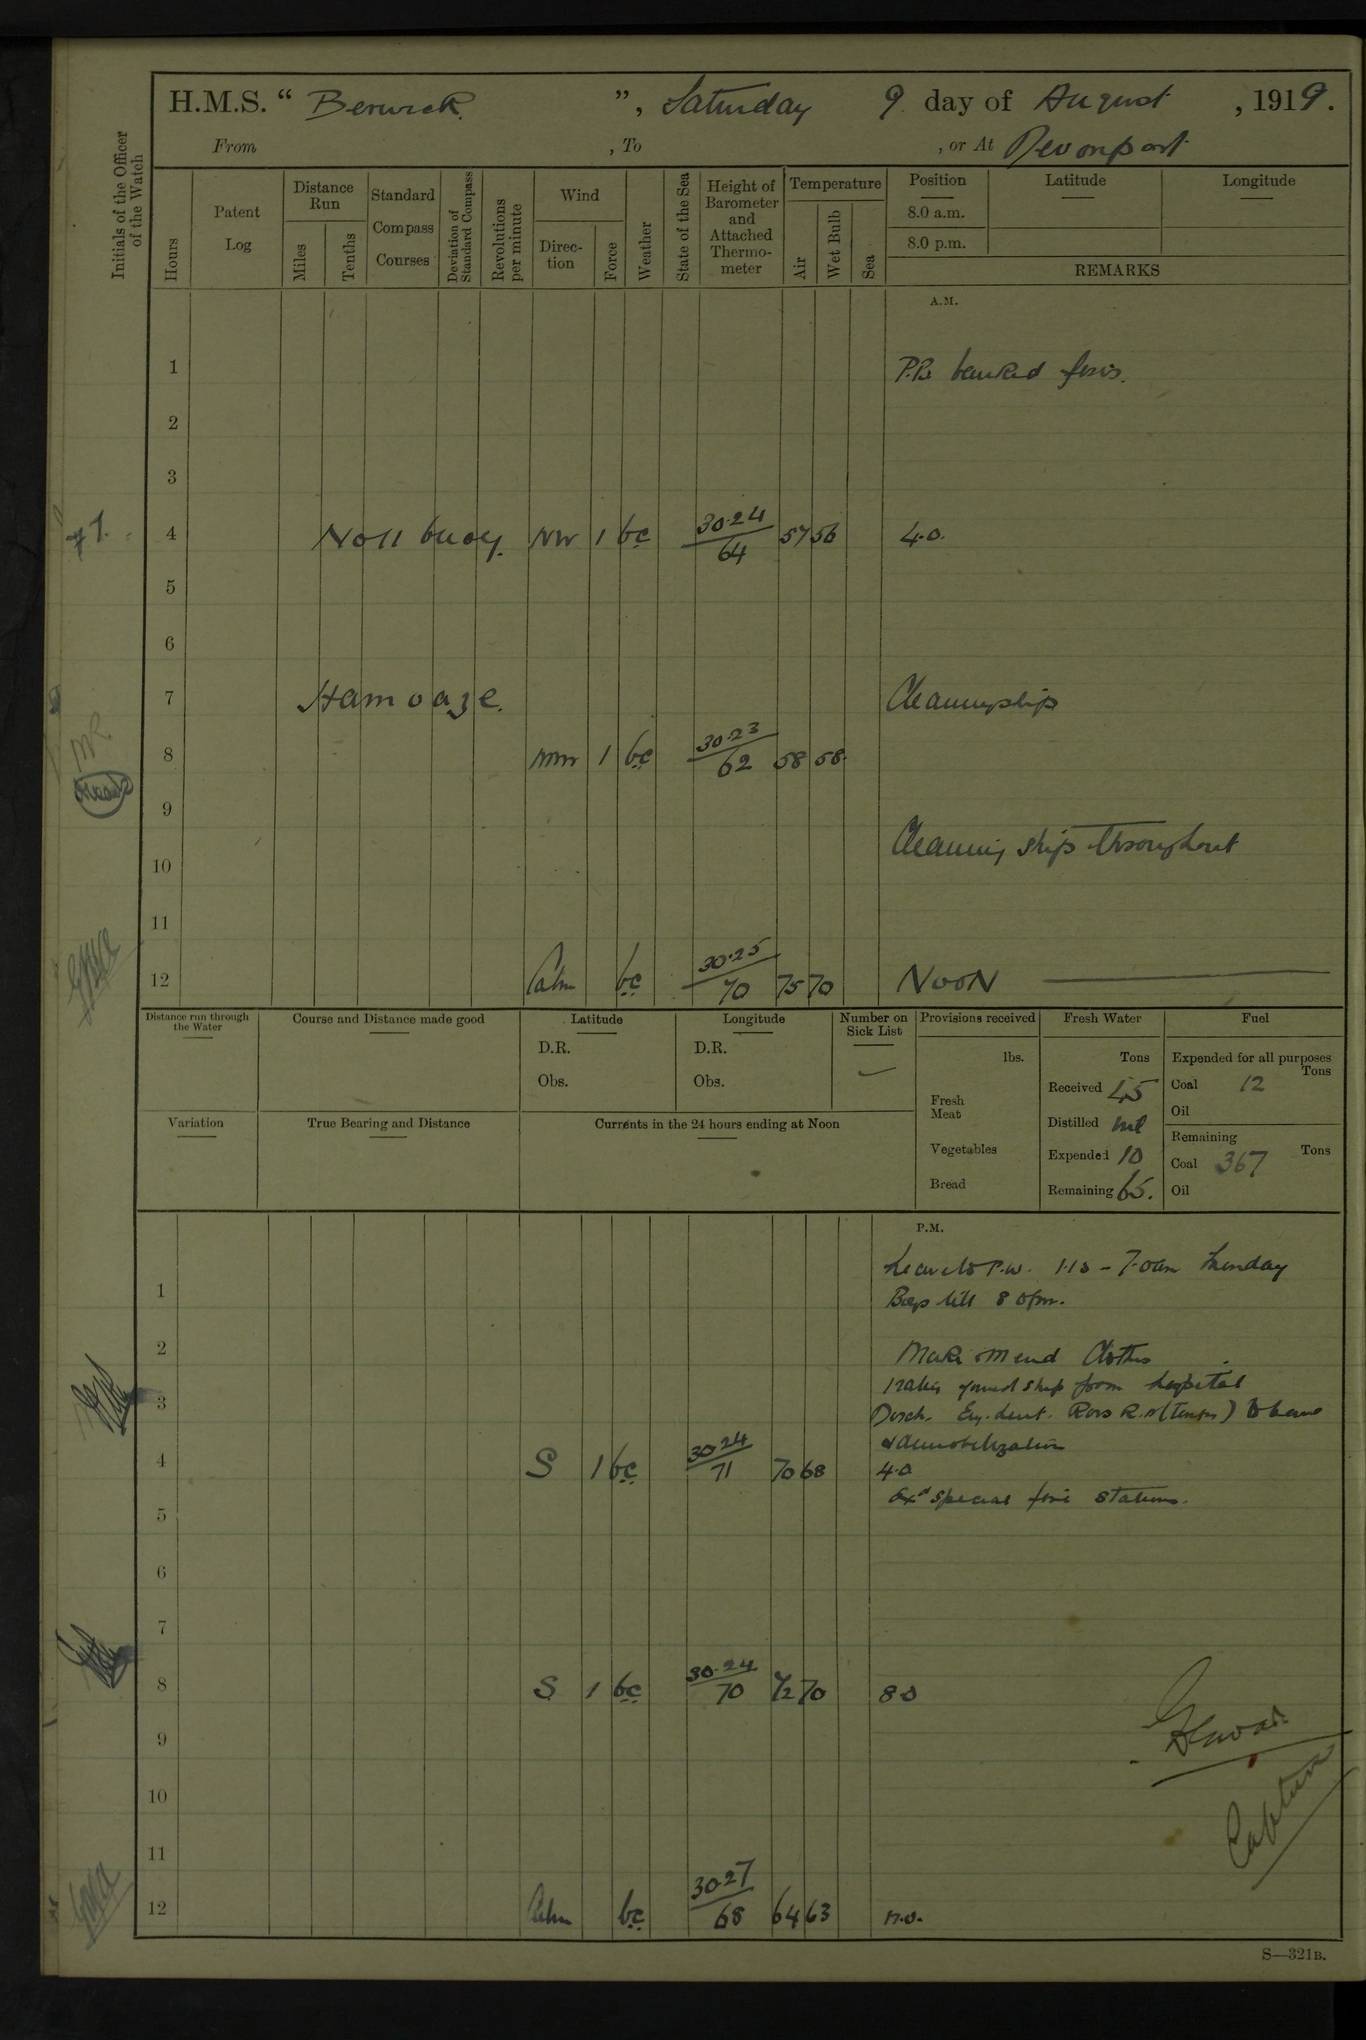 H.M.S. “ Berwick. ”, Saturday 9 day of August , 1919.
From , To , or At Devonport
Initials of the Officer of the Watch
Hours
Patent Log
Distance Run
Miles
Tenths
Standard Compass Courses
Deviation of Standard Compass
Revolutions per minute
Wind
Direc-tion
Force
Weather
State of the Sea
Height of Barometer and Attached Thermo-meter
Temperature
Air
Wet Bulb
Sea
Position
8.0 a.m.
8.0 p.m.
Latitude
Longitude
REMARKS
A.M.
1 P.Ps banked fires.
2
3
4 No 11 buoy. NW 1 bc 30.24 / 64 57 56 4.0.
5
6
7 Hamoaze. Cleaning ship
8 NW 1 bc 30.23 / 62 58 58
9
Cleaning ship throughout
10
11
12 Calm bc 30.25 / 70 75 70 NOON
Distance run through the Water
Course and Distance made good
Latitude
D.R.
Obs.
Longitude
D.R.
Obs.
Number on Sick List
Provisions received
lbs.
Fresh Meat
Vegetables
Bread
Fresh Water
Tons
Received 45
Distilled nil
Expended 10
Remaining 65.
Fuel
Expended for all purposes
Tons
Coal 12
Oil
Remaining
Tons
Coal 367
Oil
Variation
True Bearing and Distance
Currents in the 24 hours ending at Noon
P.M.
Leave to P.W. 1.15 - 7.0am Monday
1 Boys till 8 0pm.
2 Make & Mend Clothes
ratg joined ship from hospital
3 Disch. Eng. Lieut. Ross R.N (Temp) to
& demobilization
4 S 1 bc 30.24 / 71 70 68 4.0
Exd special fire stations.
5
6
7
8 S 1 bc 30.24 / 70 72 70 8.0
9
10
Captain
11
12 Calm bc 30.27 / 68 64 63
S—321B.